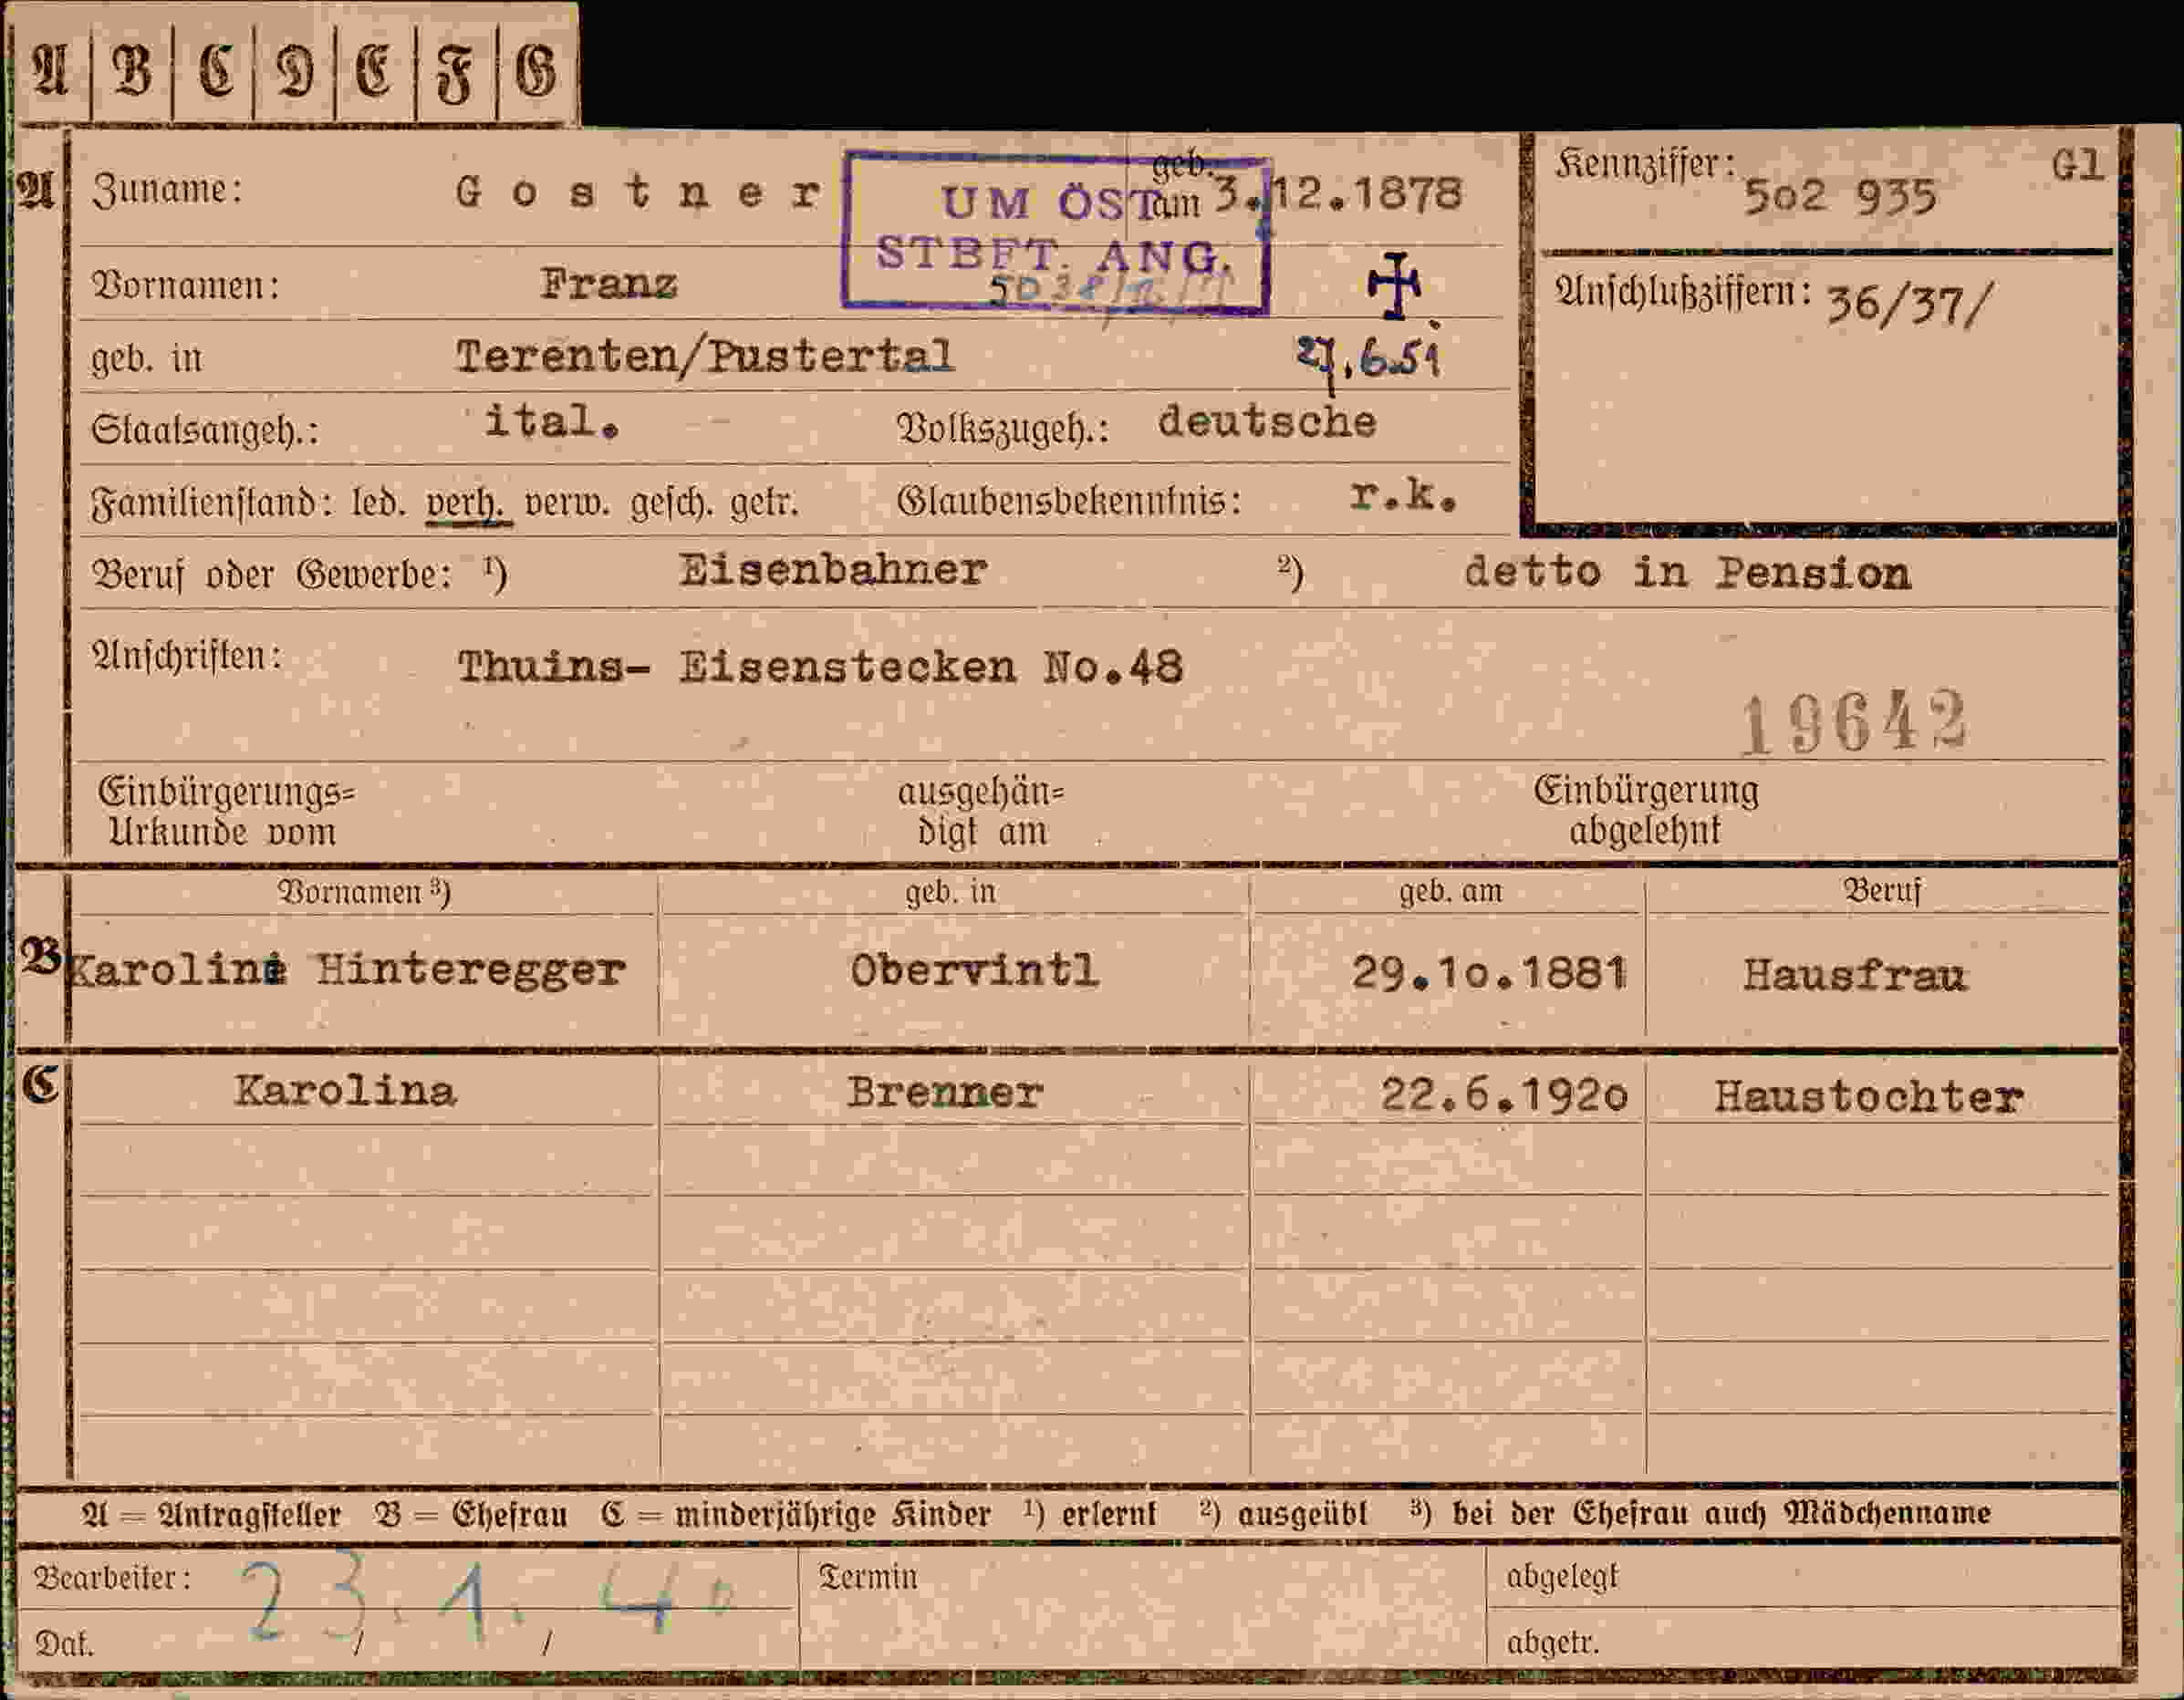 A B C D E F G
A Zuname: Gostner geb. am 3.12.1878 Kennziffer: 502 935 Gl
UM ÖST
STBFT. ANG.
Vornamen: Franz Anschlußziffern: 36/37/
geb. in Terenten/Pustertal 27.6.51
Staatsangeh.: ital. Volkszugeh.: deutsche
Familienstand: led. verh. verw. gesch. getr. Glaubensbekenntnis: r.k.
Beruf oder Gewerbe: 1) Eisenbahner 2) detto in Pension
Anschriften: Thuins- Eisenstecken No.48
19642
Einbürgerungs= ausgehän= Einbürgerung
Urkunde vom digt am abgelehnt
Vornamen 3) geb. in geb. am Beruf
B Hinteregger Obervintl 29.10.1881 Hausfrau
C Karolina Brenner 22.6.1920 Haustochter
A = Antragsteller B = Ehefrau C = minderjährige Kinder 1) erlernt 2) ausgeübt 3) bei der Ehefrau auch Mädchenname
Bearbeiter: 23.1.40 Termin abgelegt
Dat. / / abgetr.